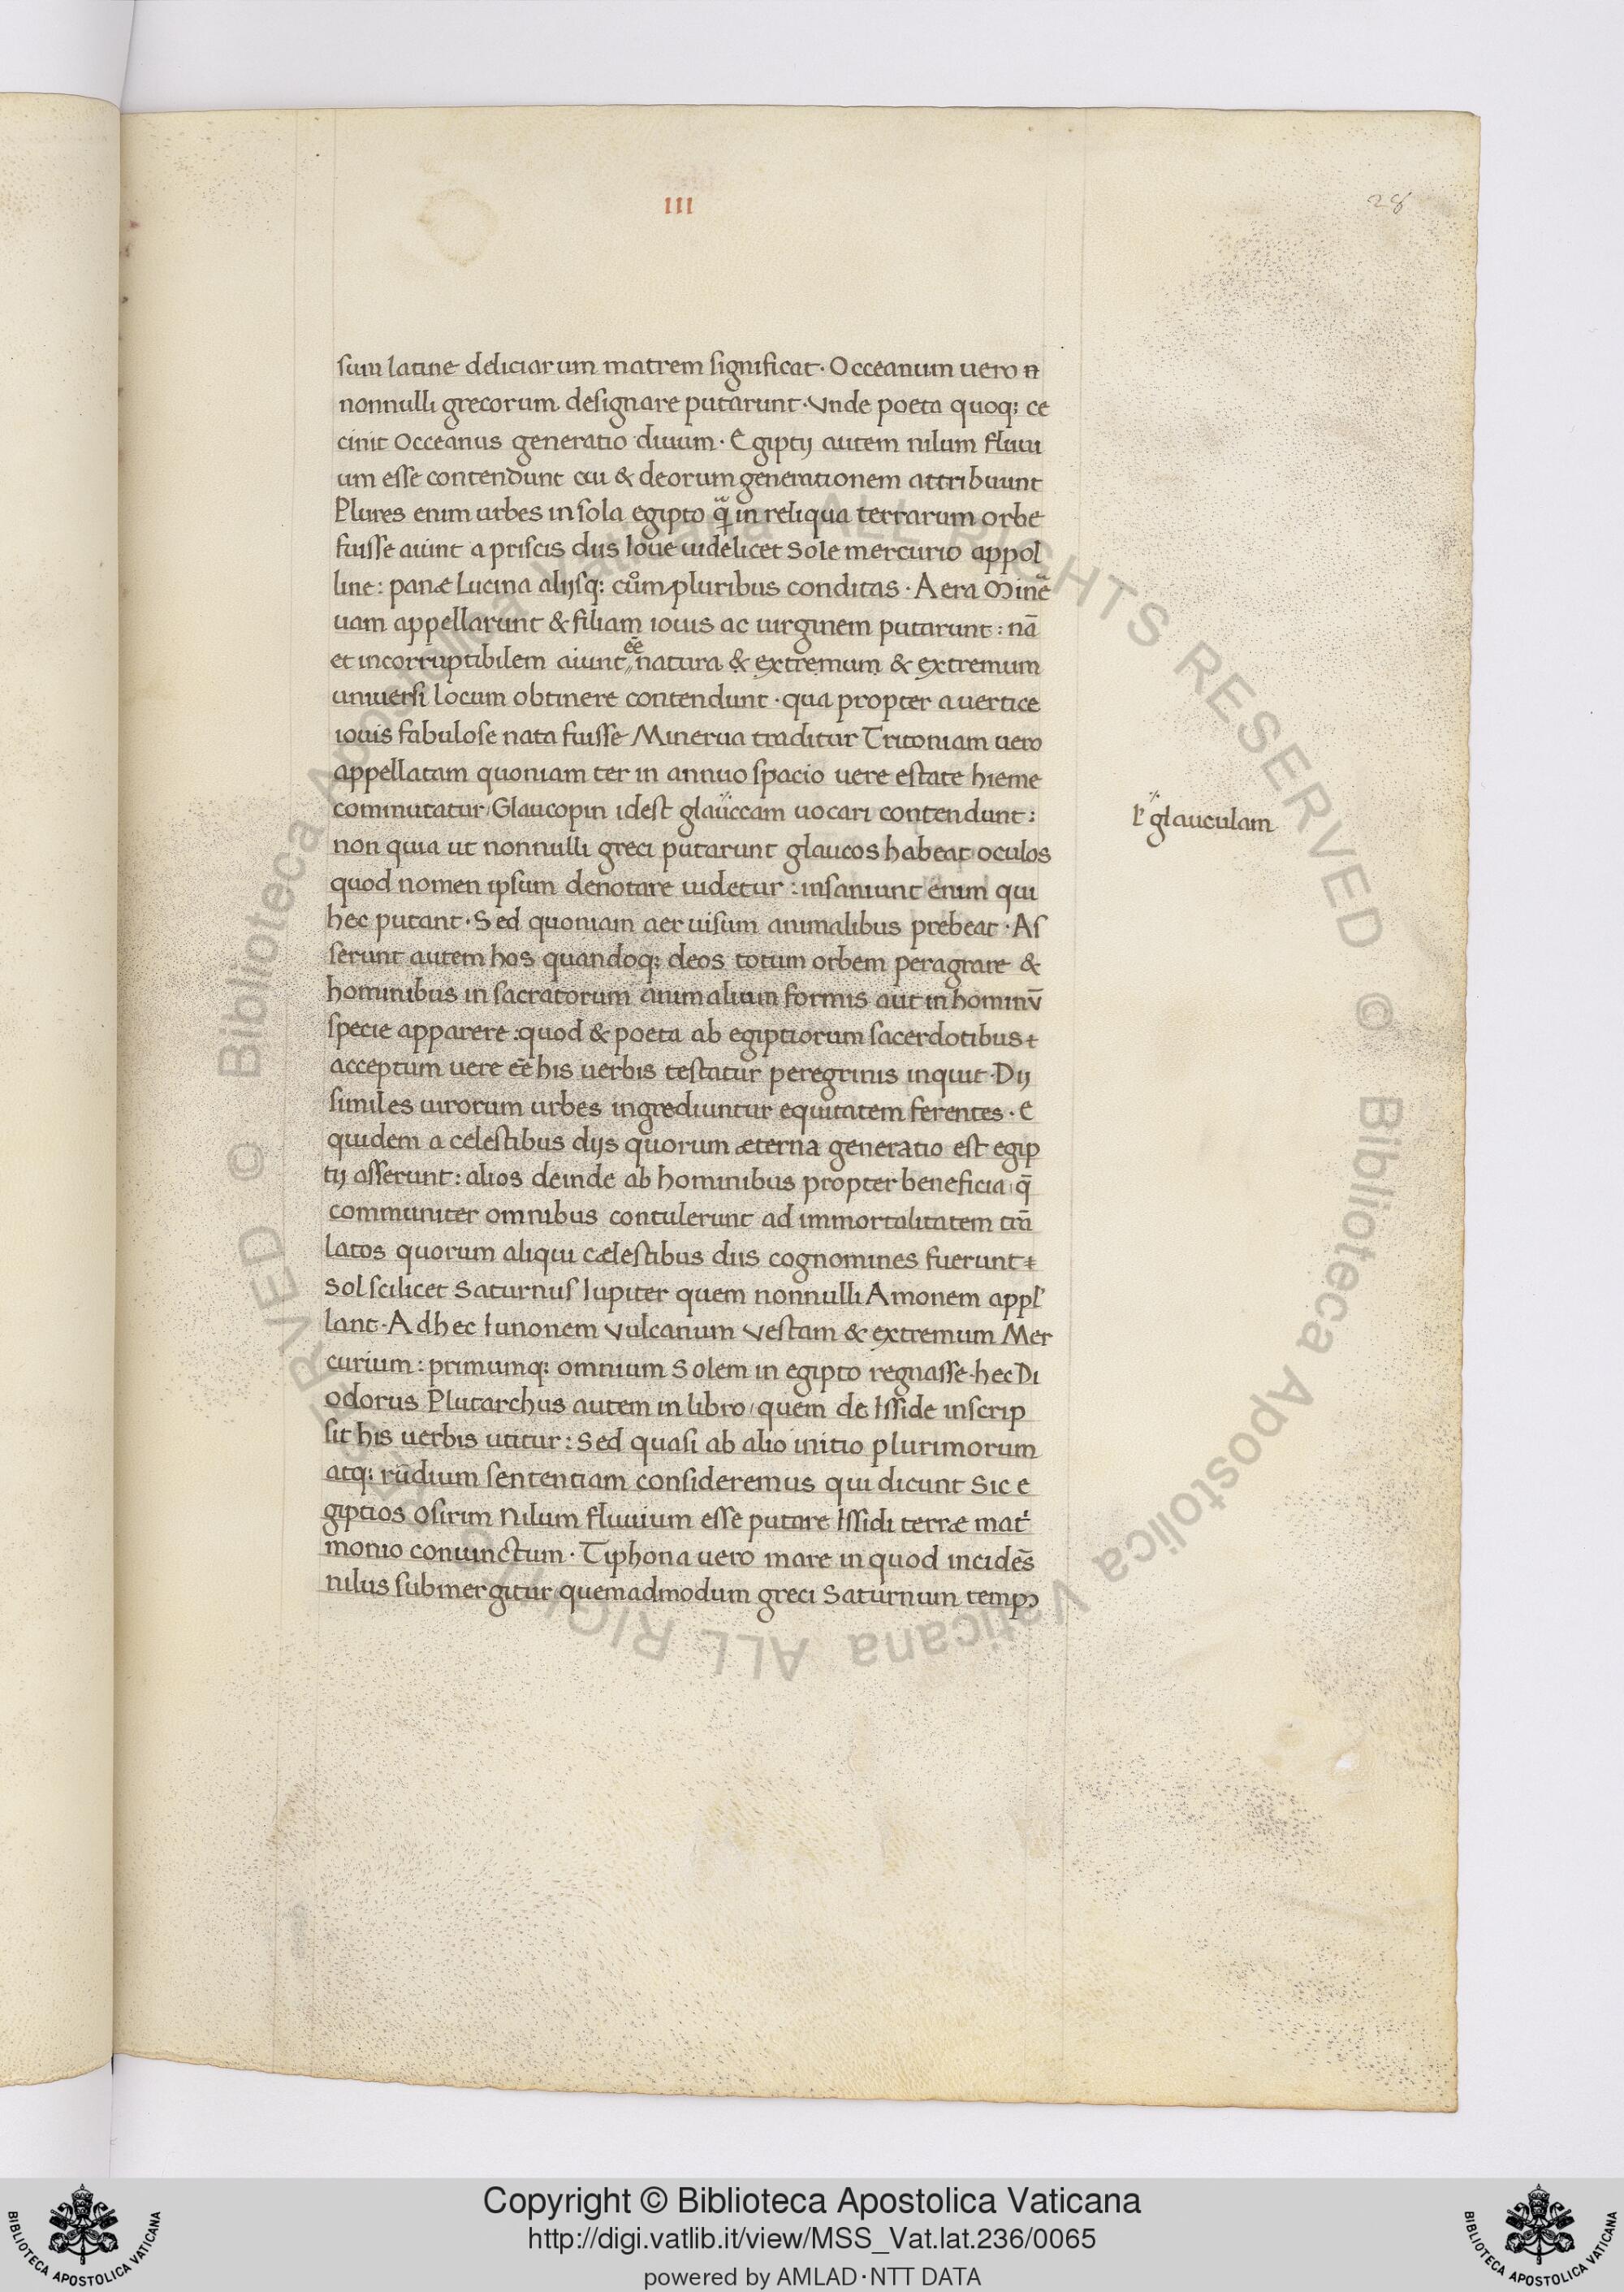 III
28
sum latine deliciarum matrem significat· Occeanum uero n
nonnulli grecorum designare putarunt· Vnde poeta quoq; ce
cinit Occeanus generatio diuum· Egiptij autem nilum fluui
um esse contendunt cui & deorum generationem attribuunt
Plures enim urbes in sola egipto q̃ in reliqua terrarum orbe
fuisse aiunt a priscis diis Ioue uidelicet Sole mercurio appol
line: panæ Lucina alijsq; cum pluribus conditas· Aera Mine
uam appellarunt & filiam iouis ac uirginem putarunt: nā
et incorruptibilem aiunt eē natura & extremum & extremum
uniuersi locum obtinere contendunt· qua propter a uertice
iouis fabulose nata fuisse Minerua traditur Tritoniam uero
appellatam quoniam ter in annuo spacio uere estate hieme
commutatur Glaucopin idest glauccam uocari contendunt:
l' glauculam
non quia ut nonnulli greci putarunt glaucos habeat oculos
quod nomen ipsum denotare uidetur: insaniunt enim qui
hec putant· Sed quoniam aer uisum animalibus prebeat· As
serunt autem hos quandoq; deos totum orbem peragrare &
hominibus in sacratorum animalium formis aut in hominū
specie apparere: quod & poeta ab egiptiorum sacerdotibus
acceptum uere eē his uerbis testatur peregrinis inquit· Dij
similes uirorum urbes ingrediuntur equitatem ferentes· E
quidem a celestibus dijs quorum æterna generatio est egip
tij asserunt: alios deinde ab hominibus propter beneficia q̄
communiter omnibus contulerunt ad immortalitatem trā
latos quorum aliqui cælestibus diis cognomines fuerunt
Sol scilicet Saturnus Iupiter quem nonnulli Amonem appl'
lant· Adhec Iunonem Vulcanum Vestam & extremum Mer
curium: primumq; omnium Solem in egipto regnasse· hec Di
odorus Plutarchus autem in libro quem de Isside inscrip
sit his uerbis utitur: Sed quasi ab alio initio plurimorum
atq; rudium sententiam consideremus qui dicunt Sic e
giptios Osirim Nilum fluuium esse putare Issidi terræ mat
monio conuinctum· Tiphona uero mare in quod incidēs
nilus submergitur quemadmodum greci Saturnum temp
Copyright © Biblioteca Apostolica Vaticana
http://digi.vatlib.it/view/MSS_Vat.lat.236/0065
powered by AMLAD·NTT DATA
BIBLIOTECA APOSTOLICA VATICANA
BIBLIOTECA APOSTOLICA VATICANA
© Biblioteca Apostolica Vaticana ALL RIGHTS RESERVED
© Biblioteca Apostolica Vaticana ALL RIGHTS RESERVED